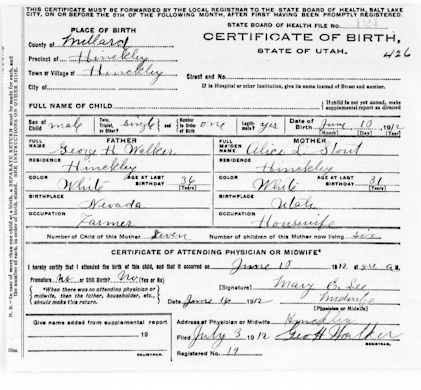 THIS CERTIFICATE MUST BE FORWARDED BY THE LOCAL REGISTRAR TO THE STATE BOARD OF HEALTH, SALT LAKE
CITY, ON OR BEFORE THE 5TH OF THE FOLLOWING MONTH, AFTER FIRST HAVING BEEN PROMPTLY REGISTERED.
STATE BOARD OF HEALTH FILE NO.
PLACE OF BIRTH
CERTIFICATE OF BIRTH,
County of Millard
STATE OF UTAH. 426
Precinct of Hinckley
Town or Village of Hinckley
Street and No.
City of
If in Hospital or other Institution, give its name instead of Street and number.
FULL NAME OF CHILD
If child is not yet named, make supplemental report as directed
Sex of Child male Twin, Triplet, or Other? single and Number in Order of Birth one Legitimate? yes Date of Birth June 10 1912
(Month) (Day) (Year)
FATHER
MOTHER
FULL NAME George H. Walker
FULL MAIDEN NAME Alice L. Stout
RESIDENCE Hinckley
RESIDENCE Hinckley
COLOR White AGE AT LAST BIRTHDAY 36 (Years)
COLOR White AGE AT LAST BIRTHDAY 31 (Years)
BIRTHPLACE Nevada
BIRTHPLACE Utah
OCCUPATION Farmer
OCCUPATION Housewife
Number of Child of this Mother Seven Number of children of this mother now living six
CERTIFICATE OF ATTENDING PHYSICIAN OR MIDWIFE*
I hereby certify that I attended the birth of this child, and that it occurred on June 10 1912, at M.
Premature No or Still Birth? No (Yes or No)
*When there was no attending physician or midwife, then the father, householder, etc., should make this return.
(Signature) Mary E. Lee
Midwife
(Physician or Midwife)
Date June 16 1912
Give name added from supplemental report
19
REGISTRAR.
Address of Physician or Midwife Hinckley
Filed July 3 1912 Geo H Walker
REGISTRAR.
Registered No. 19
N. B.—In case of more than one child at a birth, a SEPARATE RETURN must be made for each, and
the number of each, in order of birth, stated. SEE INSTRUCTIONS ON OTHER SIDE.